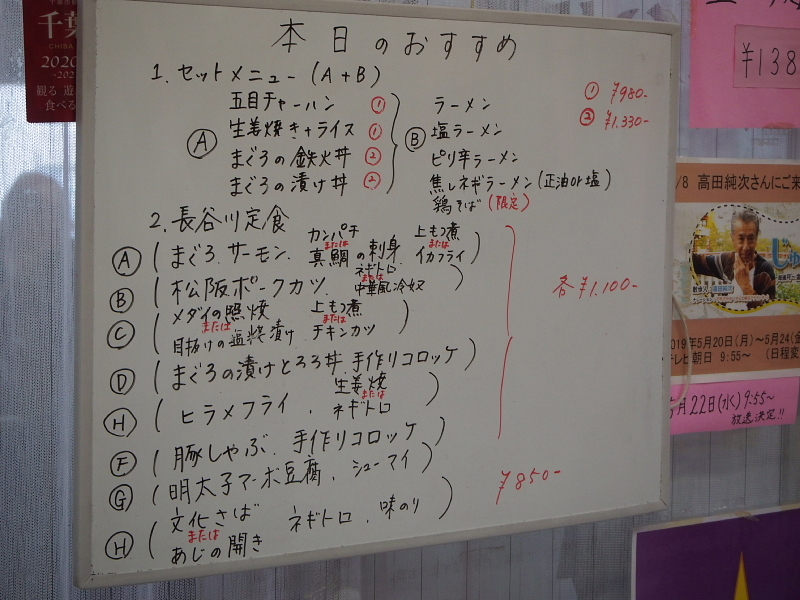 本日のおすすめ
1. セットメニュー (A+B)
Ⓐ
五目チャーハン ①
生姜焼き+ライス ①
まぐろの鉄火丼 ②
まぐろの漬け丼 ②
Ⓑ
ラーメン
塩ラーメン
ピリ辛ラーメン
焦しネギラーメン(正油or塩)
鶏そば(限定)
① ¥980-
② ¥1.330-
2. 長谷川定食
Ⓐ (まぐろ、サーモン、カンパチまたは真鯛の刺身 上もつ煮またはイカフライ)
Ⓑ (松阪ポークカツ、ネギトロまたは中華風冷奴)
Ⓒ (メダイの照焼または目抜けの塩糀漬け 上もつ煮またはチキンカツ)
Ⓓ (まぐろの漬けとろろ丼、手作りコロッケ)
Ⓗ (ヒラメフライ、生姜焼またはネギトロ)
Ⓕ (豚しゃぶ、手作りコロッケ)
Ⓖ (明太子マーボ豆腐、シューマイ)
Ⓗ (文化さばまたはあじの開き ネギトロ、味のり)
各¥1.100-
¥850-
千葉
CHIBA
2020
観る 遊
食べる
¥138
/8 高田純次さんにご来
019年5月20日(月)~5月24(金
テレビ朝日 9:55~ (日程変
月22日(水)9:55~
放送決定!!